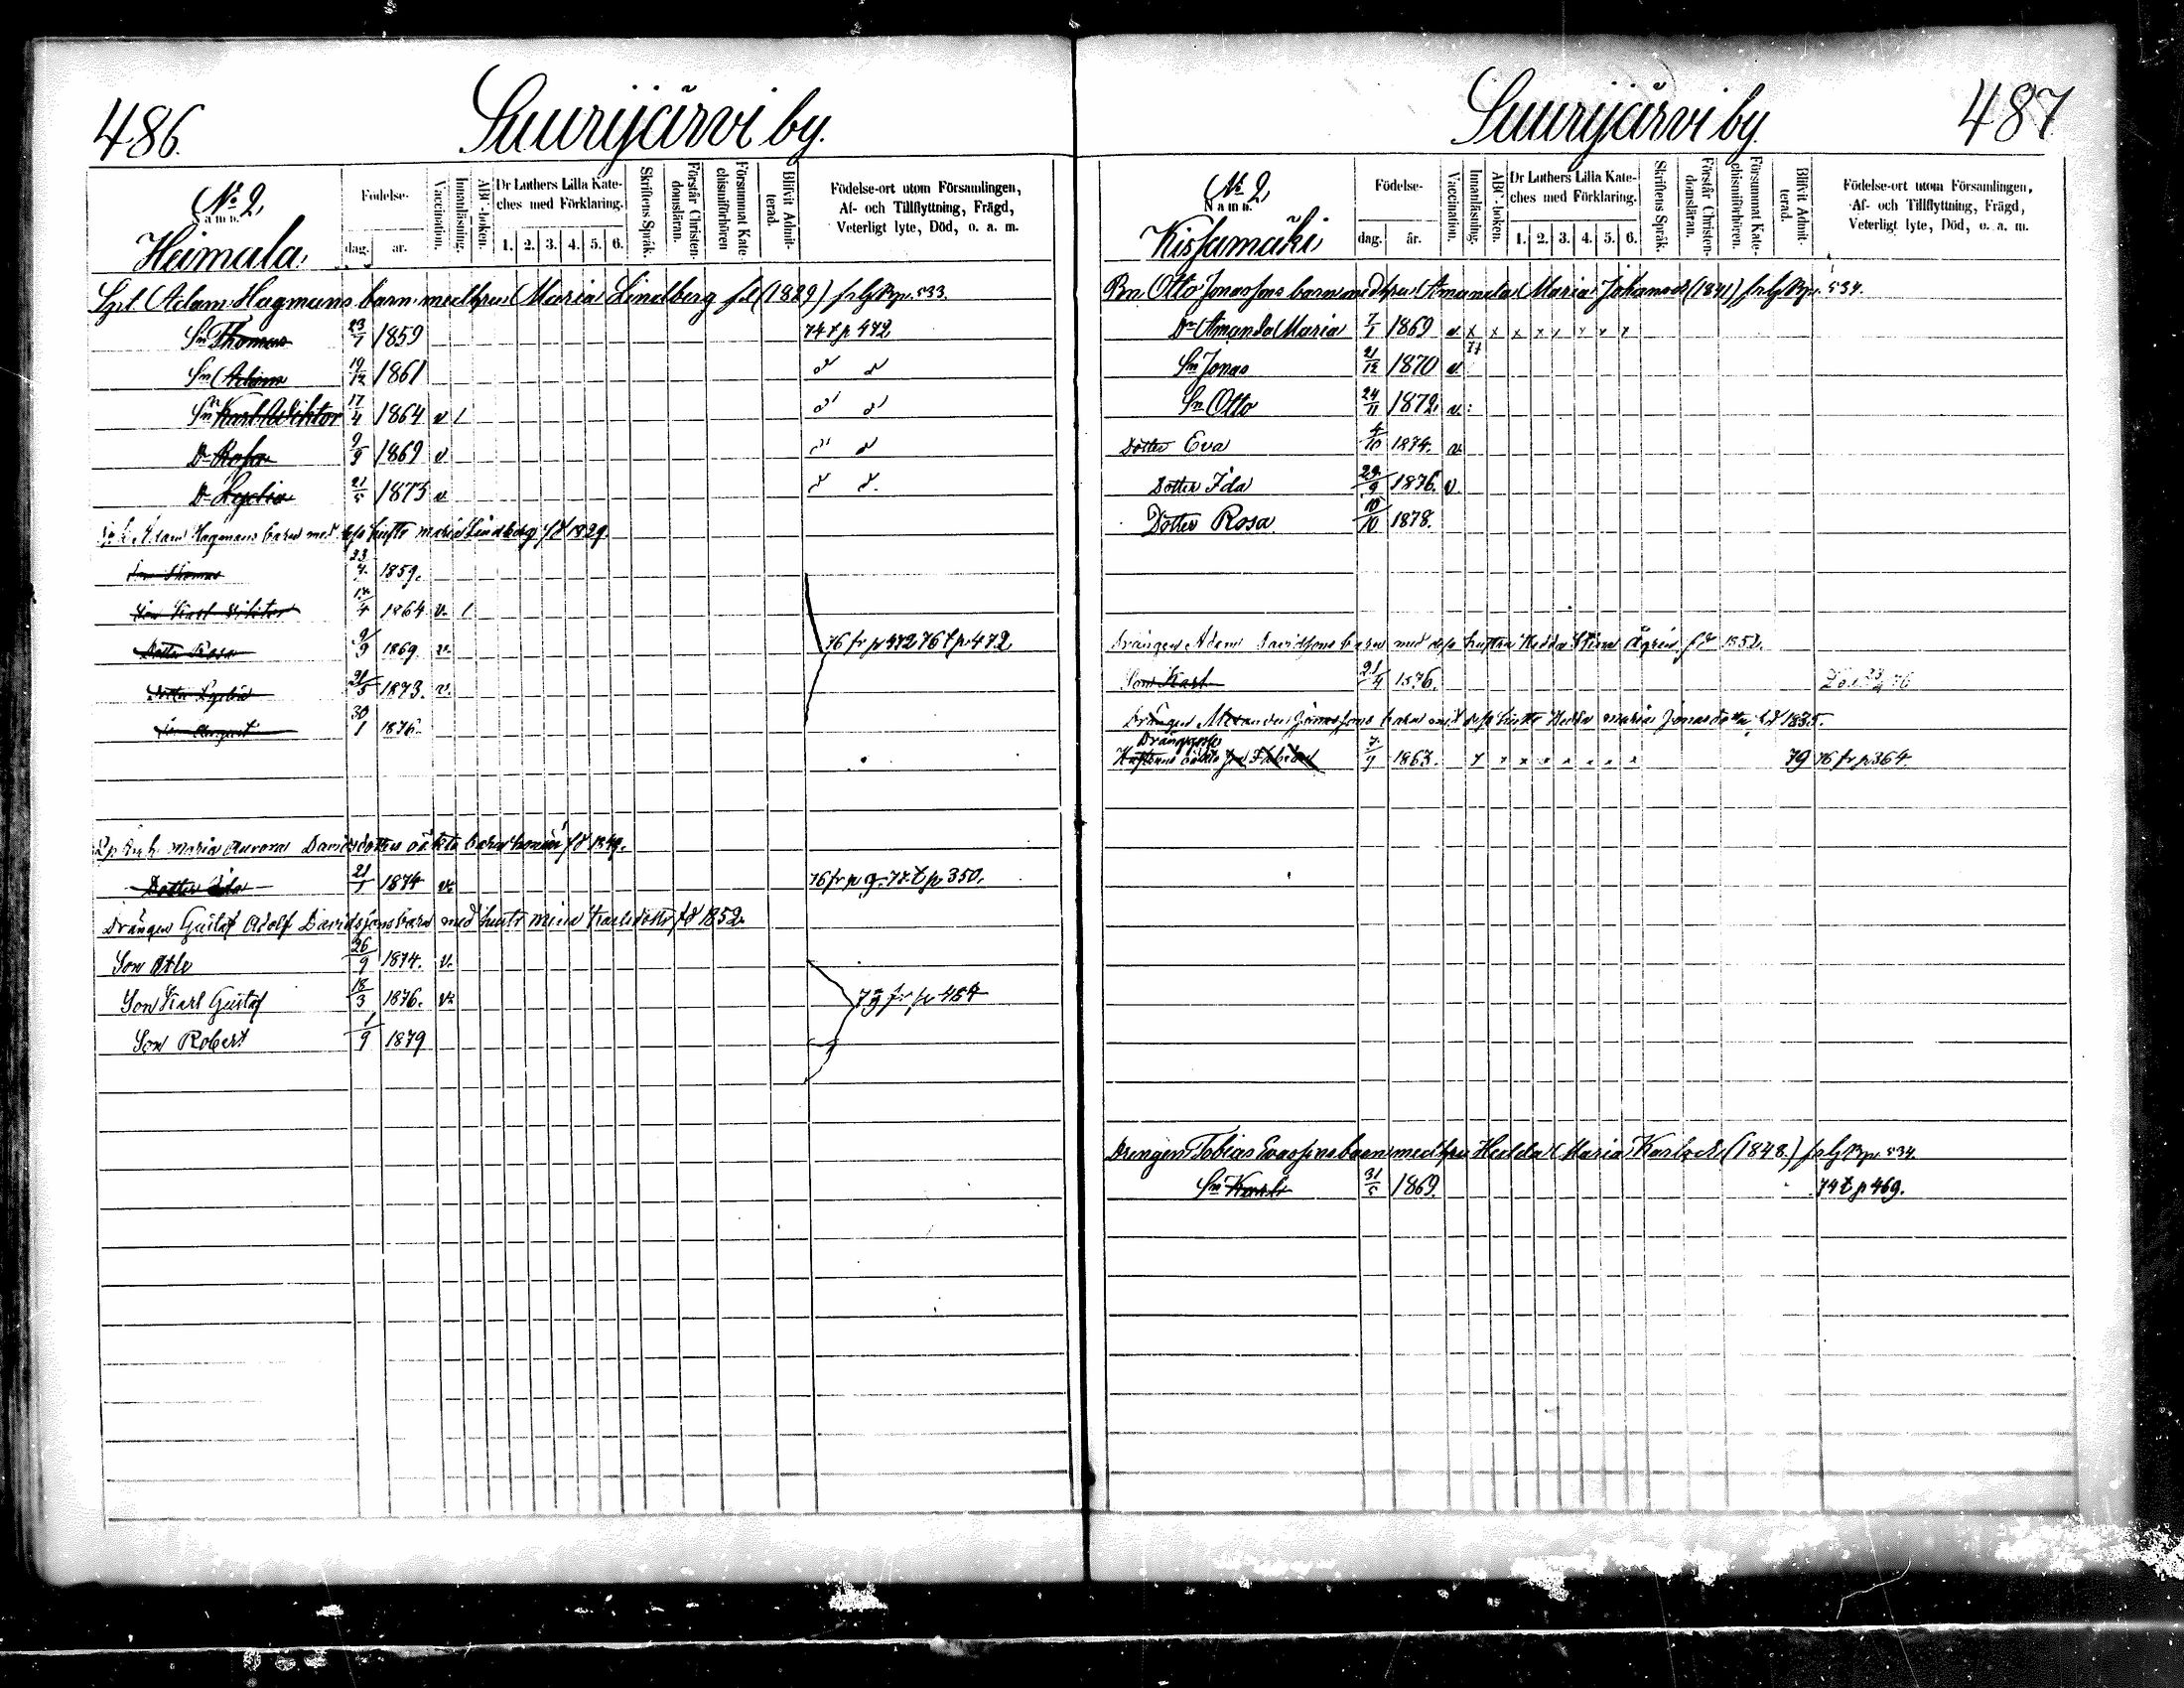 486.
Suurijärvi by.
No 2,
Namn.
Heimala.
Födelse-
dag.
år.
Vaccination.
Innanläsning.
ABC-boken.
Dr Luthers Lilla Kate-
ches med Förklaring.
1. 2. 3. 4. 5. 6.
Skriftens Språk.
Förstår Christen-
domsläran.
Försummat Kate
chismiförhören
Blifvit Admit-
terad.
Födelse-ort utom Församlingen,
Af- och Tillflyttning, Frägd,
Veterligt lyte, Död, o. a. m.
Adam Hagmans barn med hru Maria Lindberg fd (1829) 533.
Sn Thomas 23/1 1859 74 t p 472
Sn Adam 19/12 1861 d d
Sn Karl Wiktor 17/4 1864 v / d d
Dr Rosa 9/9 1869 v d d
Dr 21/5 1873 v d d
Adam Hagmans barn med dess hustr Maria Lindberg fd 1829.
Son Thomas 23 1859.
Son Karl Viktor 1864. v. /
Dotter Rosa 9/9 1869. v. 76 fr p 472 76 t p 472
Dotter 21/5 1873. v.
Son August 30/1 1876.
Maria Aurora Davidsdotters oäkta barn fd
Dotter Ida 21/1 1874 v. 76 fr p 9. 77 t p 350.
Drängen Gustaf Adolf Davidssons barn med hustr Mina Karlsdotter fd 1852.
Son 26/9 1874. v.
Son Karl Gustaf 18/3 1876. v. 79 fr p 484
Son Robert 1/9 1879
487
Suurijärvi by
No 2,
Namn.
Kissamäki
Födelse-
dag.
år.
Vaccination.
Innanläsning.
ABC-boken.
Dr Luthers Lilla Kate-
ches med Förklaring.
1. 2. 3. 4. 5. 6.
Skriftens Språk.
Förstår Christen-
domsläran.
Försummat Kate-
chismiförhören.
Blifvit Admit-
terad.
Födelse-ort utom Församlingen,
Af- och Tillflyttning, Frägd,
Veterligt lyte, Död, o. a. m.
Otto Jonassons barn med hru Amanda Maria Johansd (1841) 534.
Dr Amanda Maria 7/1 1869 v x x x x x x x x
77
Sn Jonas 21/12 1870 v
Sn Otto 24/11 1872. v.
Dotter Eva 4/10 1874. v.
Dotter Ida 29/9 1876. v.
Dotter Rosa 10/10 1878.
Drängen Adam Davidssons barn med dess hustru Hedda Stina fd 1852.
Son Karl 21/4 1876.
Drängen Alexander Jonassons barn med dess hustr Hedda Maria Jonasdotter fd 1835.
Hustruns oäkta son 1863. 79 76 fr p 364.
Drengen Tobias barn med hru Hedda Maria Karlsd (1848.) 534.
Sn Karl 31/5 1869. 74 t p 469.